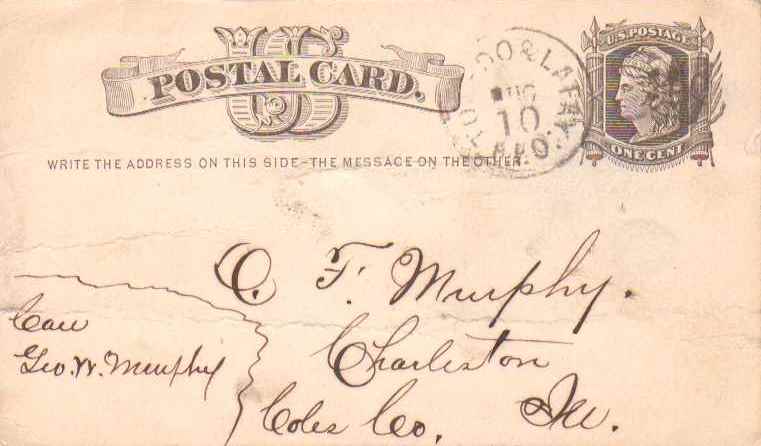 US
POSTAL CARD.
U.S. POSTAGE
ONE CENT
& LAFAY
AUG
10
R.P.O.
WRITE THE ADDRESS ON THIS SIDE–THE MESSAGE ON THE OTHER
C. F. Murphy.
Care
Geo. W. Murphy
Charleston
Coles Co. Ill.